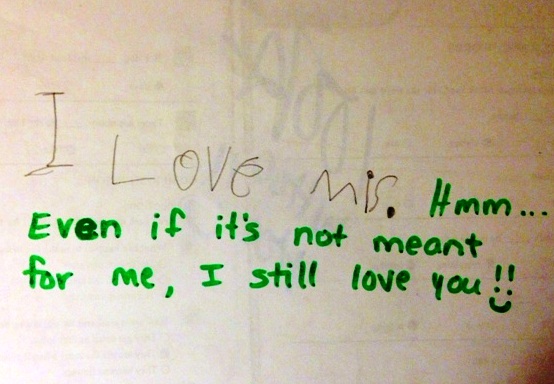 I Love mis. Hmm...
Even if it's not meant
for me, I still love you!!